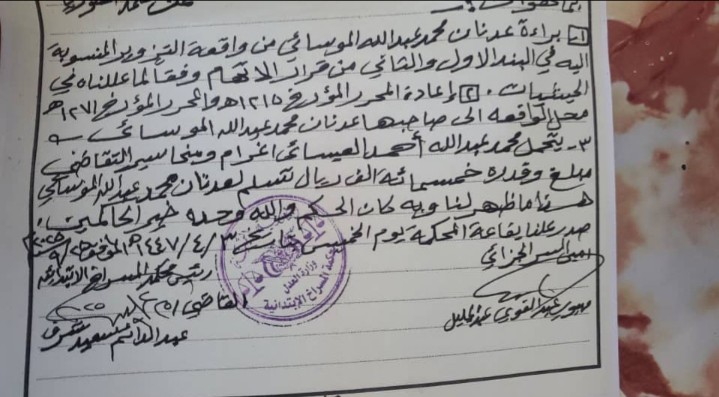 ١- براءة عدنان محمد عبدالله الموسائي من واقعة التزوير المنسوبة
اليه في البند الاول والثاني من قرار الاتهام وفقاً لما عللناه في
الحيثيات. ٢- اعادة المحرر المؤرخ ١٢١٥هـ والمحرر المؤرخ ١٢٧١هـ
محل الواقعه الى صاحبها عدنان محمد عبدالله الموسائي
٣- يتحمل محمد عبدالله أحمد العيسائي اغرام ومخاسير التقاضي
مبلغ وقدره خمسمائه الف ريال تسلم لعدنان محمد عبدالله الموسائي
هذا ما ظهر لنا وبه كان الحكم والله وحده خير الحاكمين،
صدر علنا بقاعة المحكمة يوم الخميس بتاريخ ٣/٤/١٤٤٧هـ الموافق
امين السر الجزائي
رئيس محكمة المسراخ الابتدائية
القاضي
وزارة العدل
محكمة المسراخ الابتدائية
عبدالدائم سعيد